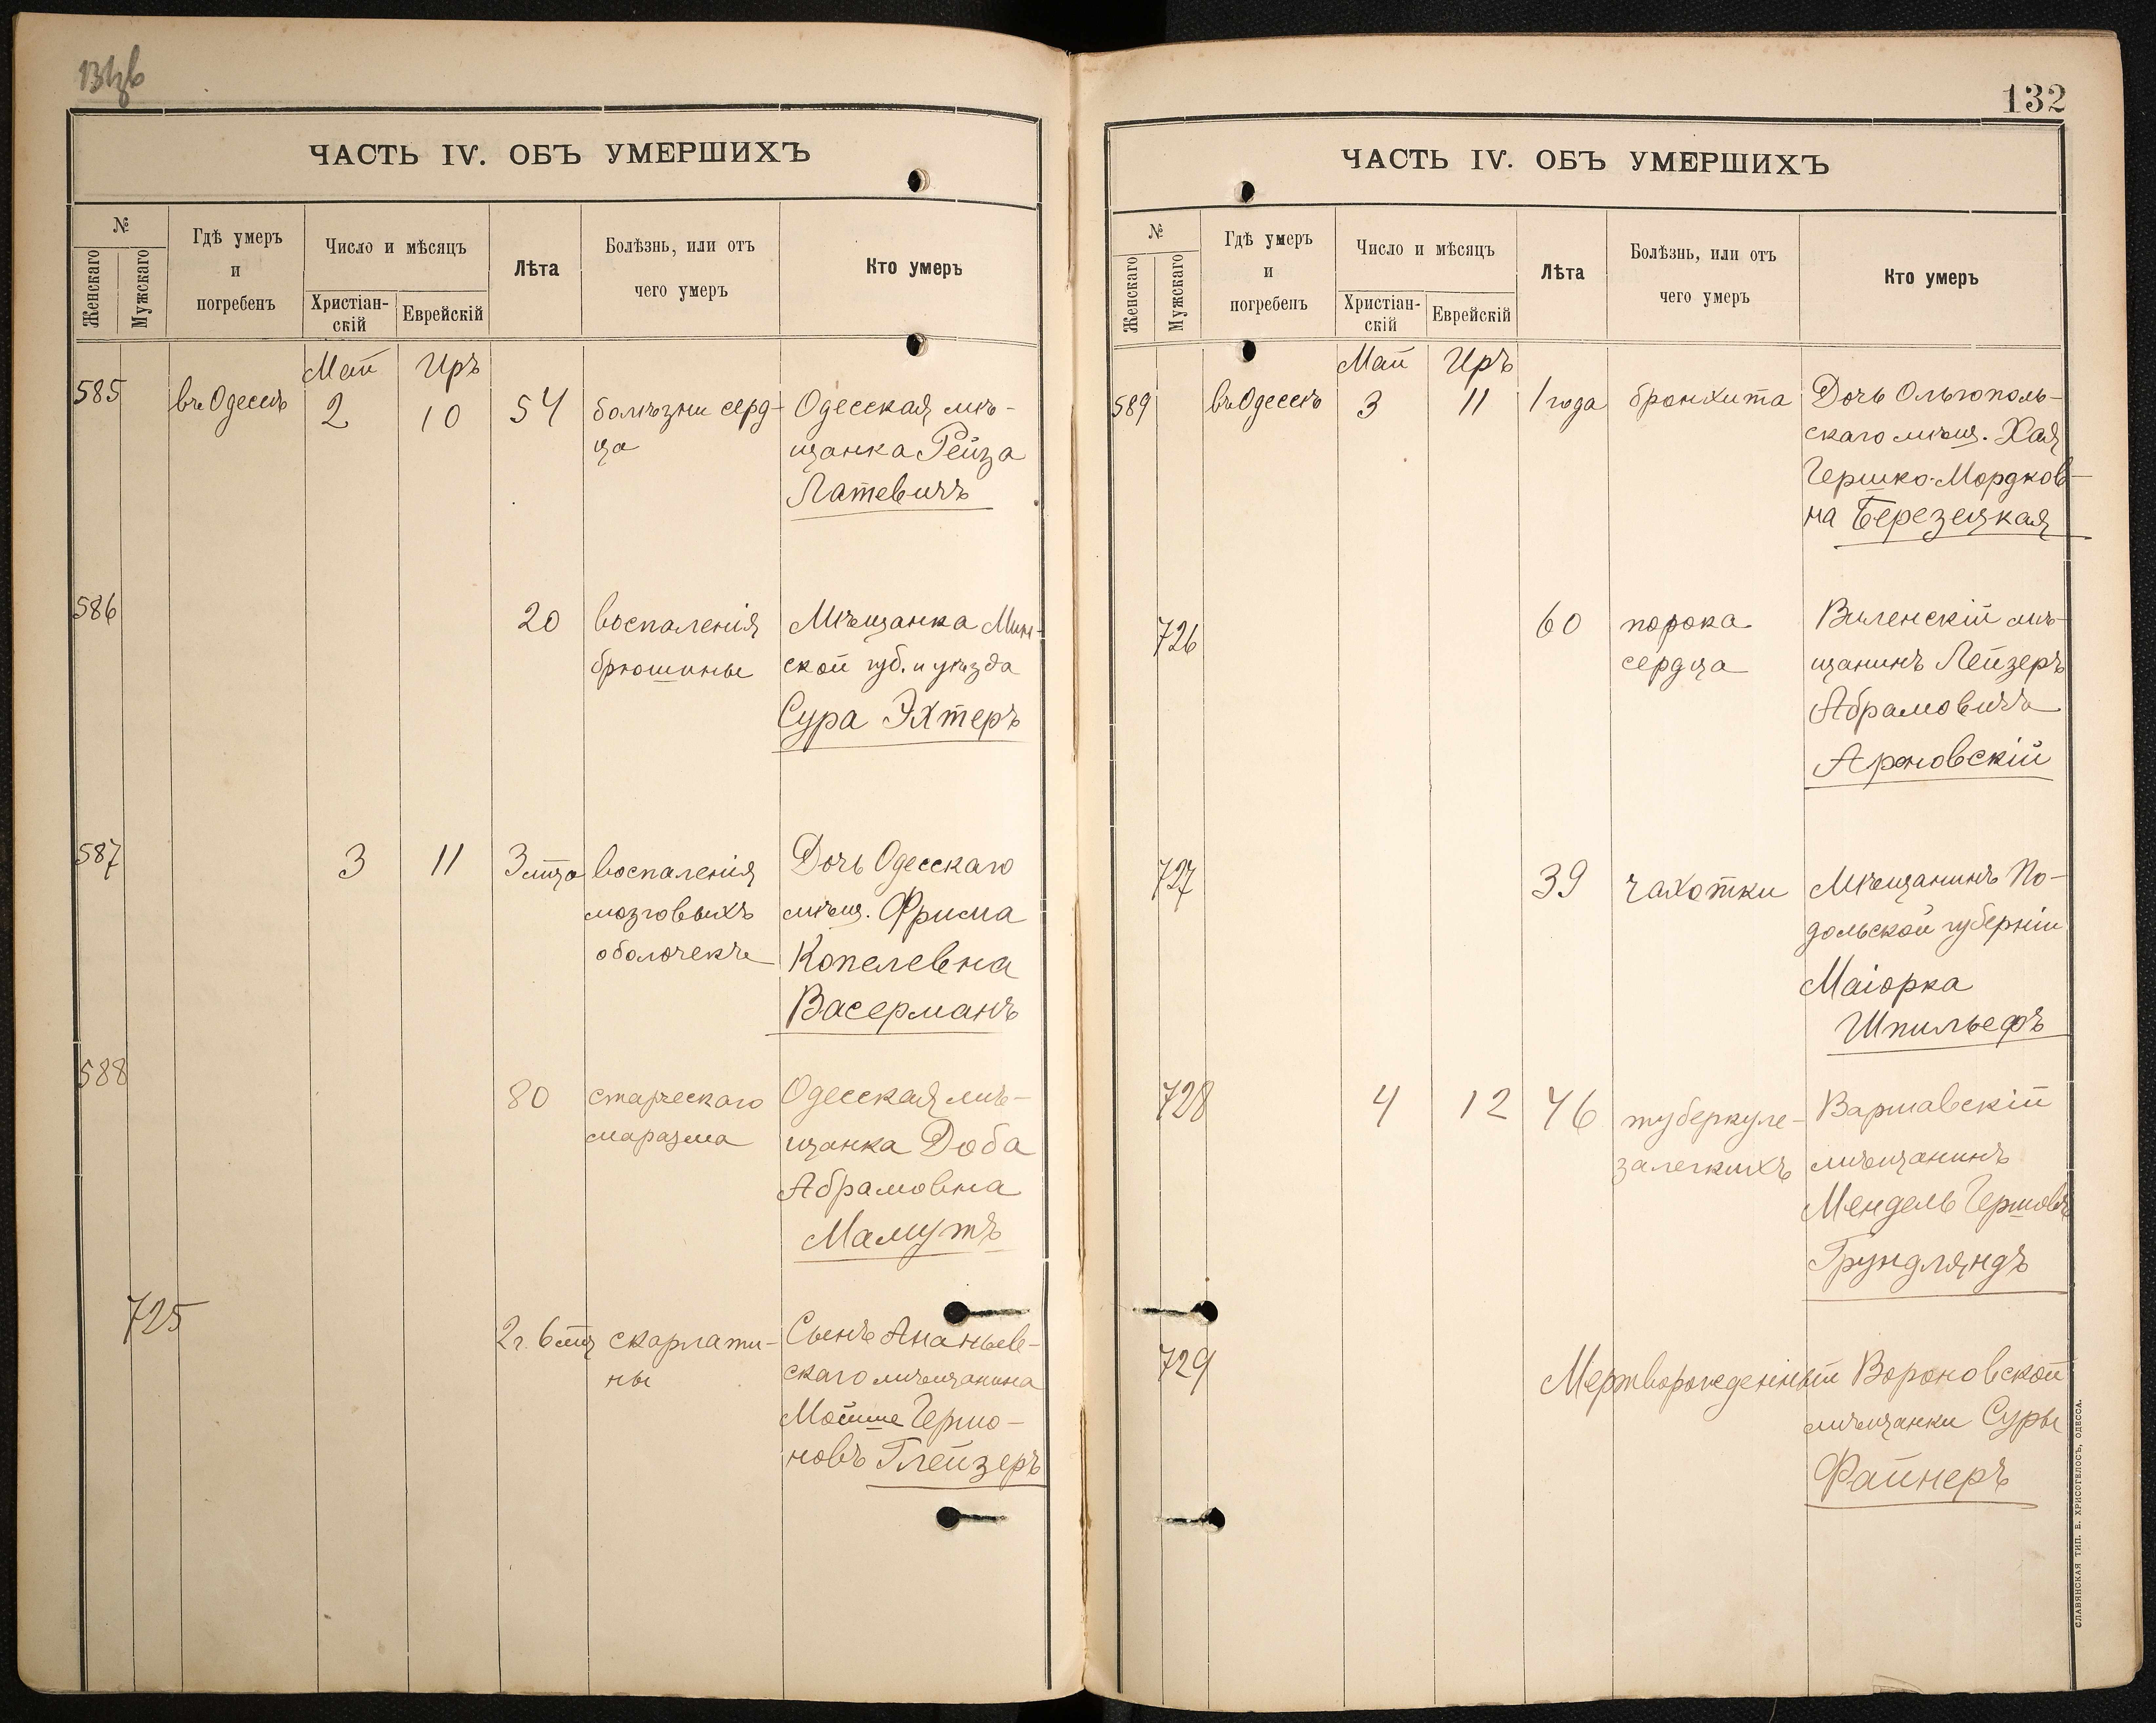 ЧАСТЬ IV. ОБЪ УМЕРШИХЪ
№
Женскаго
Мужскаго
Гдѣ умеръ
и
погребенъ
Число и мѣсяцъ
Христіан-
скій
Еврейскій
Лѣта
Болѣзнь, или отъ
чего умеръ
Кто умеръ
Май Иръ
585 въ Одессѣ 2 10 54 болѣзни серд- Одесская мѣ-
ца щанка Рейза
Латевичъ
586 20 воспаленія Мѣщанка Мин-
брюшины ской губ. и уѣзда
Сура Эхтеръ
587 3 11 3 мѣсца воспаленія Дочь Одесскаго
мозговыхъ мѣщ. Фрима
оболочекъ Копелевна
Васерманъ
588 80 старческаго Одесская мѣ-
маразма щанка Доба
Абрамовна
Мамутъ
725 2 г. 6 мсц скарлати- Сынъ Ананьев-
ны скаго мѣщанина
Мойше Гершо-
новъ Глейзеръ
132
ЧАСТЬ IV. ОБЪ УМЕРШИХЪ
№
Женскаго
Мужскаго
Гдѣ умеръ
и
погребенъ
Число и мѣсяцъ
Христіан-
скій
Еврейскій
Лѣта
Болѣзнь, или отъ
чего умеръ
Кто умеръ
Май Иръ
589 въ Одессѣ 3 11 1 года бронхита Дочь Ольгополь-
скаго мѣщ. Хая
Гершко-Мордков-
на Березецкая
726 60 порока Виленскій мѣ-
сердца щанинъ Лейзеръ
Абрамовичъ
Ароновскій
727 39 чахотки Мѣщанинъ По-
дольской губерніи
Маіорка
Шпильефъ
728 4 12 46 туберкуле- Варшавскій
за легкихъ мѣщанинъ
Мендель Гершовъ
Грундляндъ
729 Мертворожденный Вороновской
мѣщанки Суры
Файнеръ
СЛАВЯНСКАЯ ТИП. Е. ХРИСОГЕЛОСЪ, ОДЕССА.